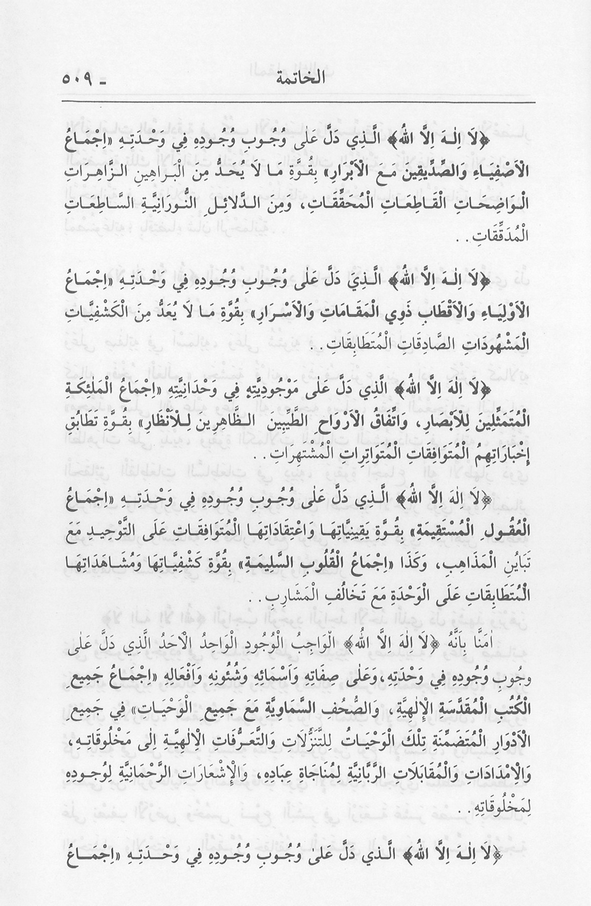 الخاتمة ـ ٥٠٩
﴿لَا اِلٰهَ اِلَّا اللهُ﴾ الَّذِي دَلَّ عَلٰى وُجُوبِ وُجُودِهِ فِي وَحْدَتِهِ «اِجْمَاعُ
الْاَصْفِيَاءِ وَالصِّدِّيقِينَ مَعَ الْاَبْرَارِ» بِقُوَّةِ مَا لَا يُحَدُّ مِنَ الْبَرَاهِينِ الزَّاهِرَاتِ
الْوَاضِحَاتِ الْقَاطِعَاتِ الْمُحَقَّقَاتِ، وَمِنَ الدَّلَائِلِ النُّورَانِيَّةِ السَّاطِعَاتِ
الْمُدَقَّقَاتِ..
﴿لَا اِلٰهَ اِلَّا اللهُ﴾ الَّذِيَ دَلَّ عَلٰى وُجُوبِ وُجُودِهِ فِي وَحْدَتِهِ «اِجْمَاعُ
الْاَوْلِيَاءِ وَالْاَقْطَابِ ذَوِي الْمَقَامَاتِ وَالْاَسْرَارِ» بِقُوَّةِ مَا لَا يُعَدُّ مِنَ الْكَشْفِيَّاتِ
الْمَشْهُودَاتِ الصَّادِقَاتِ الْمُتَطَابِقَاتِ..
﴿لَا اِلٰهَ اِلَّا اللهُ﴾ الَّذِي دَلَّ عَلٰى مَوْجُودِيَّتِهِ فِي وَحْدَانِيَّتِهِ «اِجْمَاعُ الْمَلٰئِكَةِ
الْمُتَمَثِّلِينَ لِلْاَبْصَارِ، وَاتِّفَاقُ الْاَرْوَاحِ الطَّيِّبِينَ الظَّاهِرِينَ لِلْاَنْظَارِ» بِقُوَّةِ تَطَابُقِ
إِخْبَارَاتِهِمُ الْمُتَوَافِقَاتِ الْمُتَوَاتِرَاتِ الْمُشْتَهِرَاتِ..
﴿لَا اِلٰهَ اِلَّا اللهُ﴾ الَّذِي دَلَّ عَلٰى وُجُوبِ وُجُودِهِ فِي وَحْدَتِهِ «اِجْمَاعُ
الْعُقُولِ الْمُسْتَقِيمَةِ» بِقُوَّةِ يَقِينِيَّاتِهَا وَاعْتِقَادَاتِهَا الْمُتَوَافِقَاتِ عَلَى التَّوْحِيدِ مَعَ
تَبَايُنِ الْمَذَاهِبِ، وَكَذَا «اِجْمَاعُ الْقُلُوبِ السَّلِيمَةِ» بِقُوَّةِ كَشْفِيَّاتِهَا وَمُشَاهَدَاتِهَا
الْمُتَطَابِقَاتِ عَلَى الْوَحْدَةِ مَعَ تَخَالُفِ الْمَشَارِبِ..
اٰمَنَّا بِاَنَّهُ ﴿لَا اِلٰهَ اِلَّا اللهُ﴾ الْوَاجِبُ الْوُجُودِ الْوَاحِدُ الْاَحَدُ الَّذِي دَلَّ عَلٰى
وُجُوبِ وُجُودِهِ فِي وَحْدَتِهِ، وَعَلٰى صِفَاتِهِ وَاَسْمَائِهِ وَشُئُونِهِ وَاَفْعَالِهِ «اِجْمَاعُ جَمِيعِ
الْكُتُبِ الْمُقَدَّسَةِ الْاِلٰهِيَّةِ، وَالصُّحُفِ السَّمَاوِيَّةِ مَعَ جَمِيعِ الْوَحْيَاتِ» فِي جَمِيعِ
الْاَدْوَارِ الْمُتَضَمِّنَةِ تِلْكَ الْوَحْيَاتُ لِلتَّنَزُّلَاتِ وَالتَّعَرُّفَاتِ الْاِلٰهِيَّةِ اِلٰى مَخْلُوقَاتِهِ،
وَالْاِمْدَادَاتِ وَالْمُقَابَلَاتِ الرَّبَّانِيَّةِ لِمُنَاجَاةِ عِبَادِهِ، وَالْاِشْعَارَاتِ الرَّحْمَانِيَّةِ لِوُجُودِهِ
لِمَخْلُوقَاتِهِ..
﴿لَا اِلٰهَ اِلَّا اللهُ﴾ الَّذِي دَلَّ عَلٰى وُجُوبِ وُجُودِهِ فِي وَحْدَتِهِ «اِجْمَاعُ